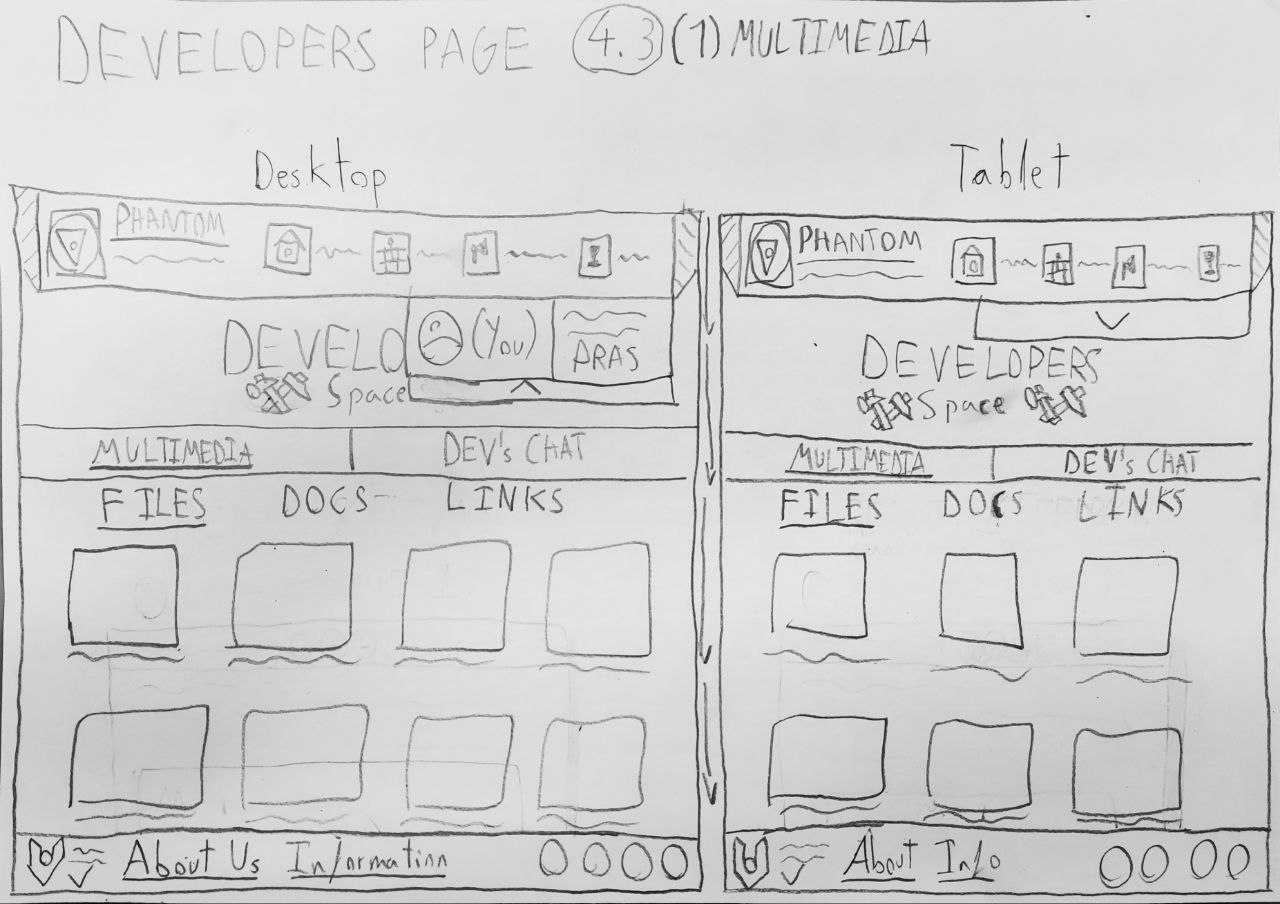 DEVELOPERS PAGE 4.3 (1) MULTIMEDIA
Desktop
PHANTOM
DEVELO
(You)
ARAS
Space
MULTIMEDIA
DEV's CHAT
FILES DOCS LINKS
About Us Information
Tablet
PHANTOM
DEVELOPERS
Space
MULTIMEDIA
DEV's CHAT
FILES DOCS LINKS
About Info